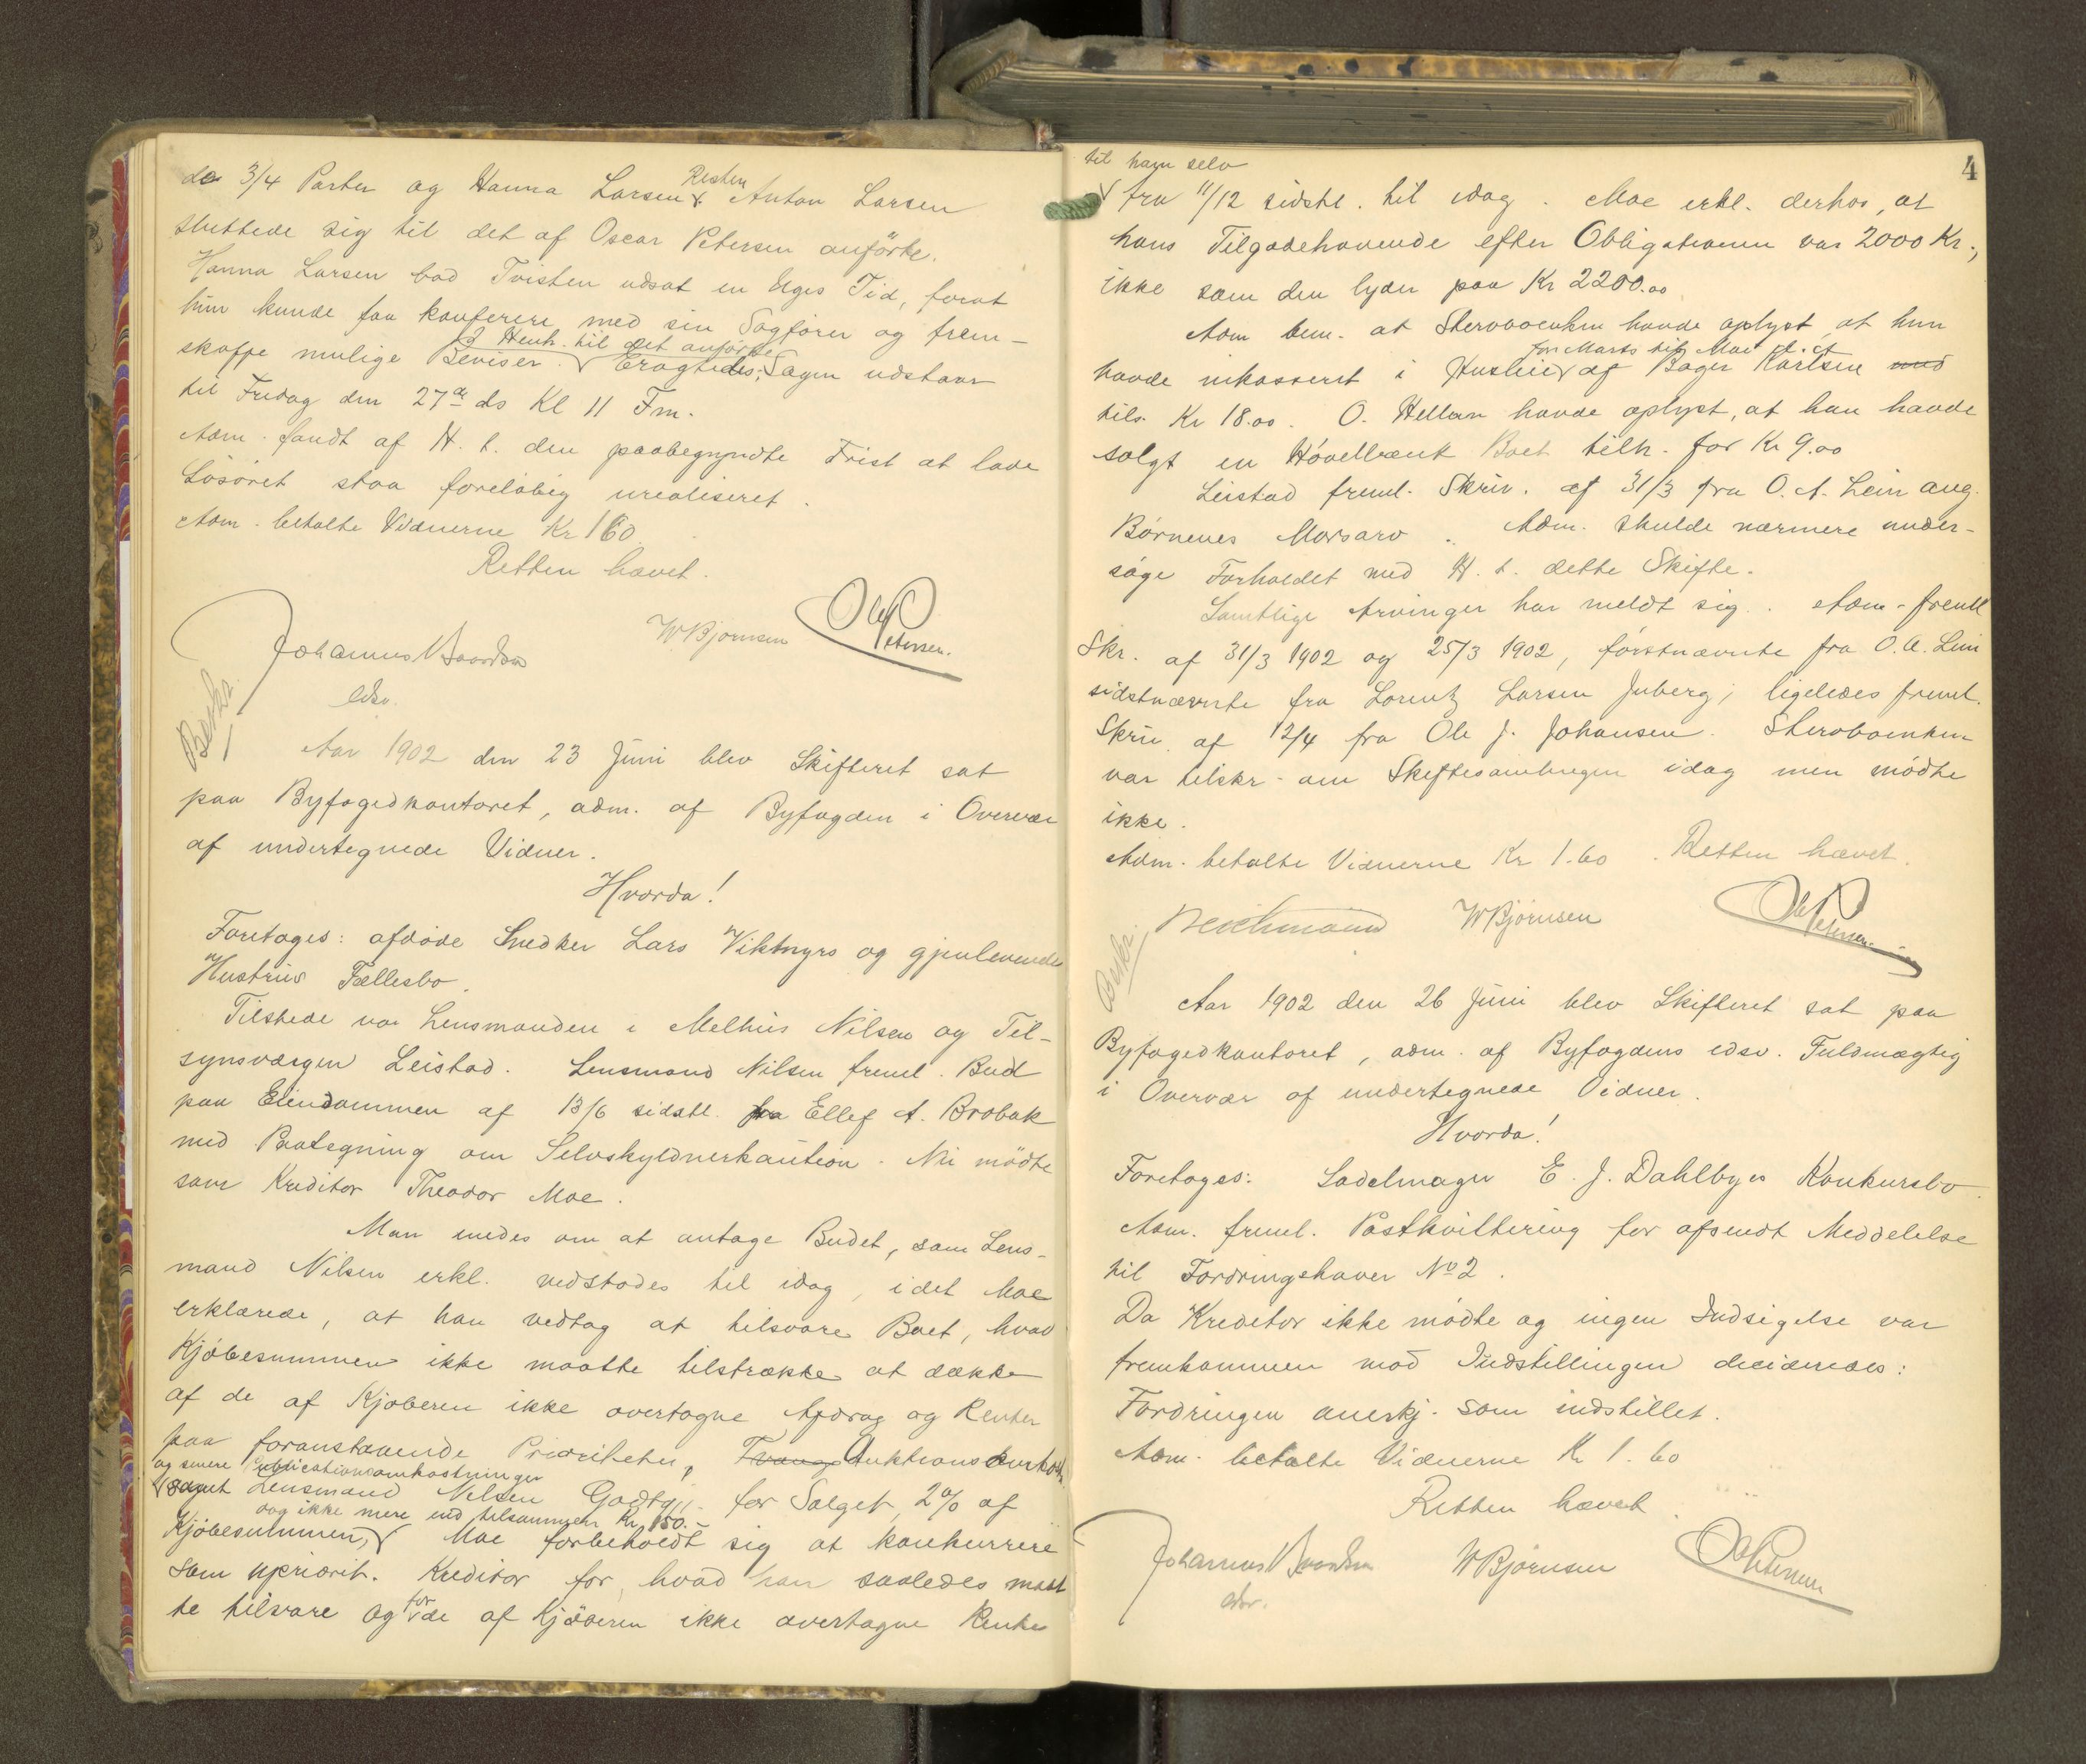 de 3/4 Parter og Hanna Larsen Resten Anton Larsen
sluttede sig til det af Oscar Petersen anførte.
Hanna Larsen bad Tvisten udsat en Uges Tid, forat
hun kunde faa konferere med sin Sagfører og frem-
skaffe mulige Beviser. I Henh. til det anførte Eragtedes; Sagen udstaar
til Fredag den 27de ds Kl 11 Fm.
Adm. fandt af H. t. den paabegyndte Frist at lade
Løsøret staa foreløbig urealiseret.
Adm. betalte Vidnerne Kr 1 60.
Retten hævet.
Johannes
edsv.
W Bjørnsen
Ole Petersen.
Beskr.
Aar 1902 den 23 Juni blev Skifteret sat
paa Byfogedkontoret, adm. af Byfogden i Overvær
af undertegnede Vidner.
Hvorda!
Foretoges: afdøde Snedker Lars Viktnyrs og gjenlevende
Hustrus Fællesbo.
Tilstede var Lensmanden i Melhus Nilsen og Til-
synsværgen Leistad. Lensmand Nilsen freml. Bud
paa Eiendommen af 13/6 sidstl. fra Ellef A. Brobak
med Paategning om Selvskyldnerkaution. Nu mødte
som Kreditor Theodor Moe.
Man enedes om at antage Budet, som Lens-
mand Nilsen erkl. vedstodes til idag, idet Moe
erklærede, at han vedtog at tilsvare Boet, hvad
Kjøbesummen ikke maatte tilstrække at dække
af de af Kjøberen ikke overtagne Afdrag og Renter
paa foranstaaende Prioriteter, Tvangs Auktions
og senere Publicationsomkostninger
samt Lensmand Nilsen Godtgj. for Salget, 2% af
dog ikke mere end tilsammen Kr. 150.-
Kjøbesummen, Moe forbeholdt sig at konkurrere
som uprior. Kreditor for, hvad han saaledes maat
te tilsvare og for de af Kjøberen ikke overtagne Renter
4
til ham selv
fra 11/12 sidstl. til idag. Moe erkl. derhos, at
hans Tilgodehavende efter Obligationen var 2000 Kr.,
ikke som den lyder paa Kr 2200.00
Adm bem. at Stervboenken havde oplyst at hun
for Marts til Mai d. A.
havde inkasseret i Husleie af Bager Karlsen med
tils. Kr 18.00. O. Hellan havde oplyst, at han havde
solgt en Høvelbænk Boet tilh. for Kr 9.00
Leistad freml. Skriv. af 31/3 fra O. A. Lein ang.
Børnenes Morsarv. Adm. skulde nærmere under-
søge Forholdet med H. t. dette Skifte.
Samtlige Arvinger har meldt sig. Adm. freml
Skr. af 31/3 1902 og 25/3 1902, førstnævnte fra O. A. Lein
sidstnævnte fra Lorentz Larsen Juberg; ligeledes freml.
Skriv. af 12/4 fra Ole J. Johansen. Stervboenken
var tilskr. om Skiftesamlingen idag men mødte
ikke.
Adm. betalte Vidnerne Kr 1.60. Retten hævet.
W Bjørnsen
Ole Petersen
Beskr.
Aar 1902 den 26 Juni blev Skifteret sat paa
Byfogedkontoret, adm. af Byfogdens edsv. Fuldmægtig
i Overvær af undertegnede Vidner.
Hvorda!
Foretoges: Sadelmager E. J. Dahlbyes Konkursbo.
Adm. freml. Postkvittering for afsendt Meddelelse
til Fordringshaver No 2.
Da Kreditor ikke mødte og ingen Indsigelse var
fremkommen mod Indstillingen decideredes:
Fordringen anerkj. som indstillet.
Adm. betalte Vidnerne Kr 1.60
Retten hævet.
Johannes
edsv.
W Bjørnsen
Ole Petersen